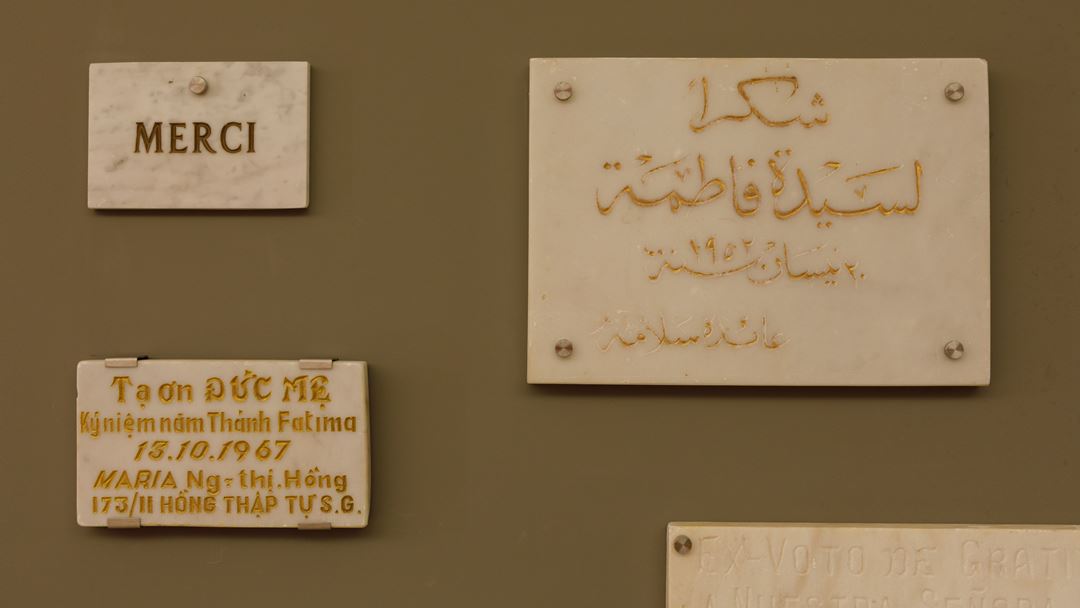 MERCI
شكراً
لسيدة فاطمة
٢٠ نيسان سنة ١٩٥٢
عائدة سلامة
Tạ ơn ĐỨC MẸ
Kỷ niệm năm Thánh Fatima
13.10.1967
MARIA Ng-thị.Hồng
173/II HỒNG THẬP TỰ S.G.
EX-VOTO DE GRATI
A NUESTRA SEÑORA